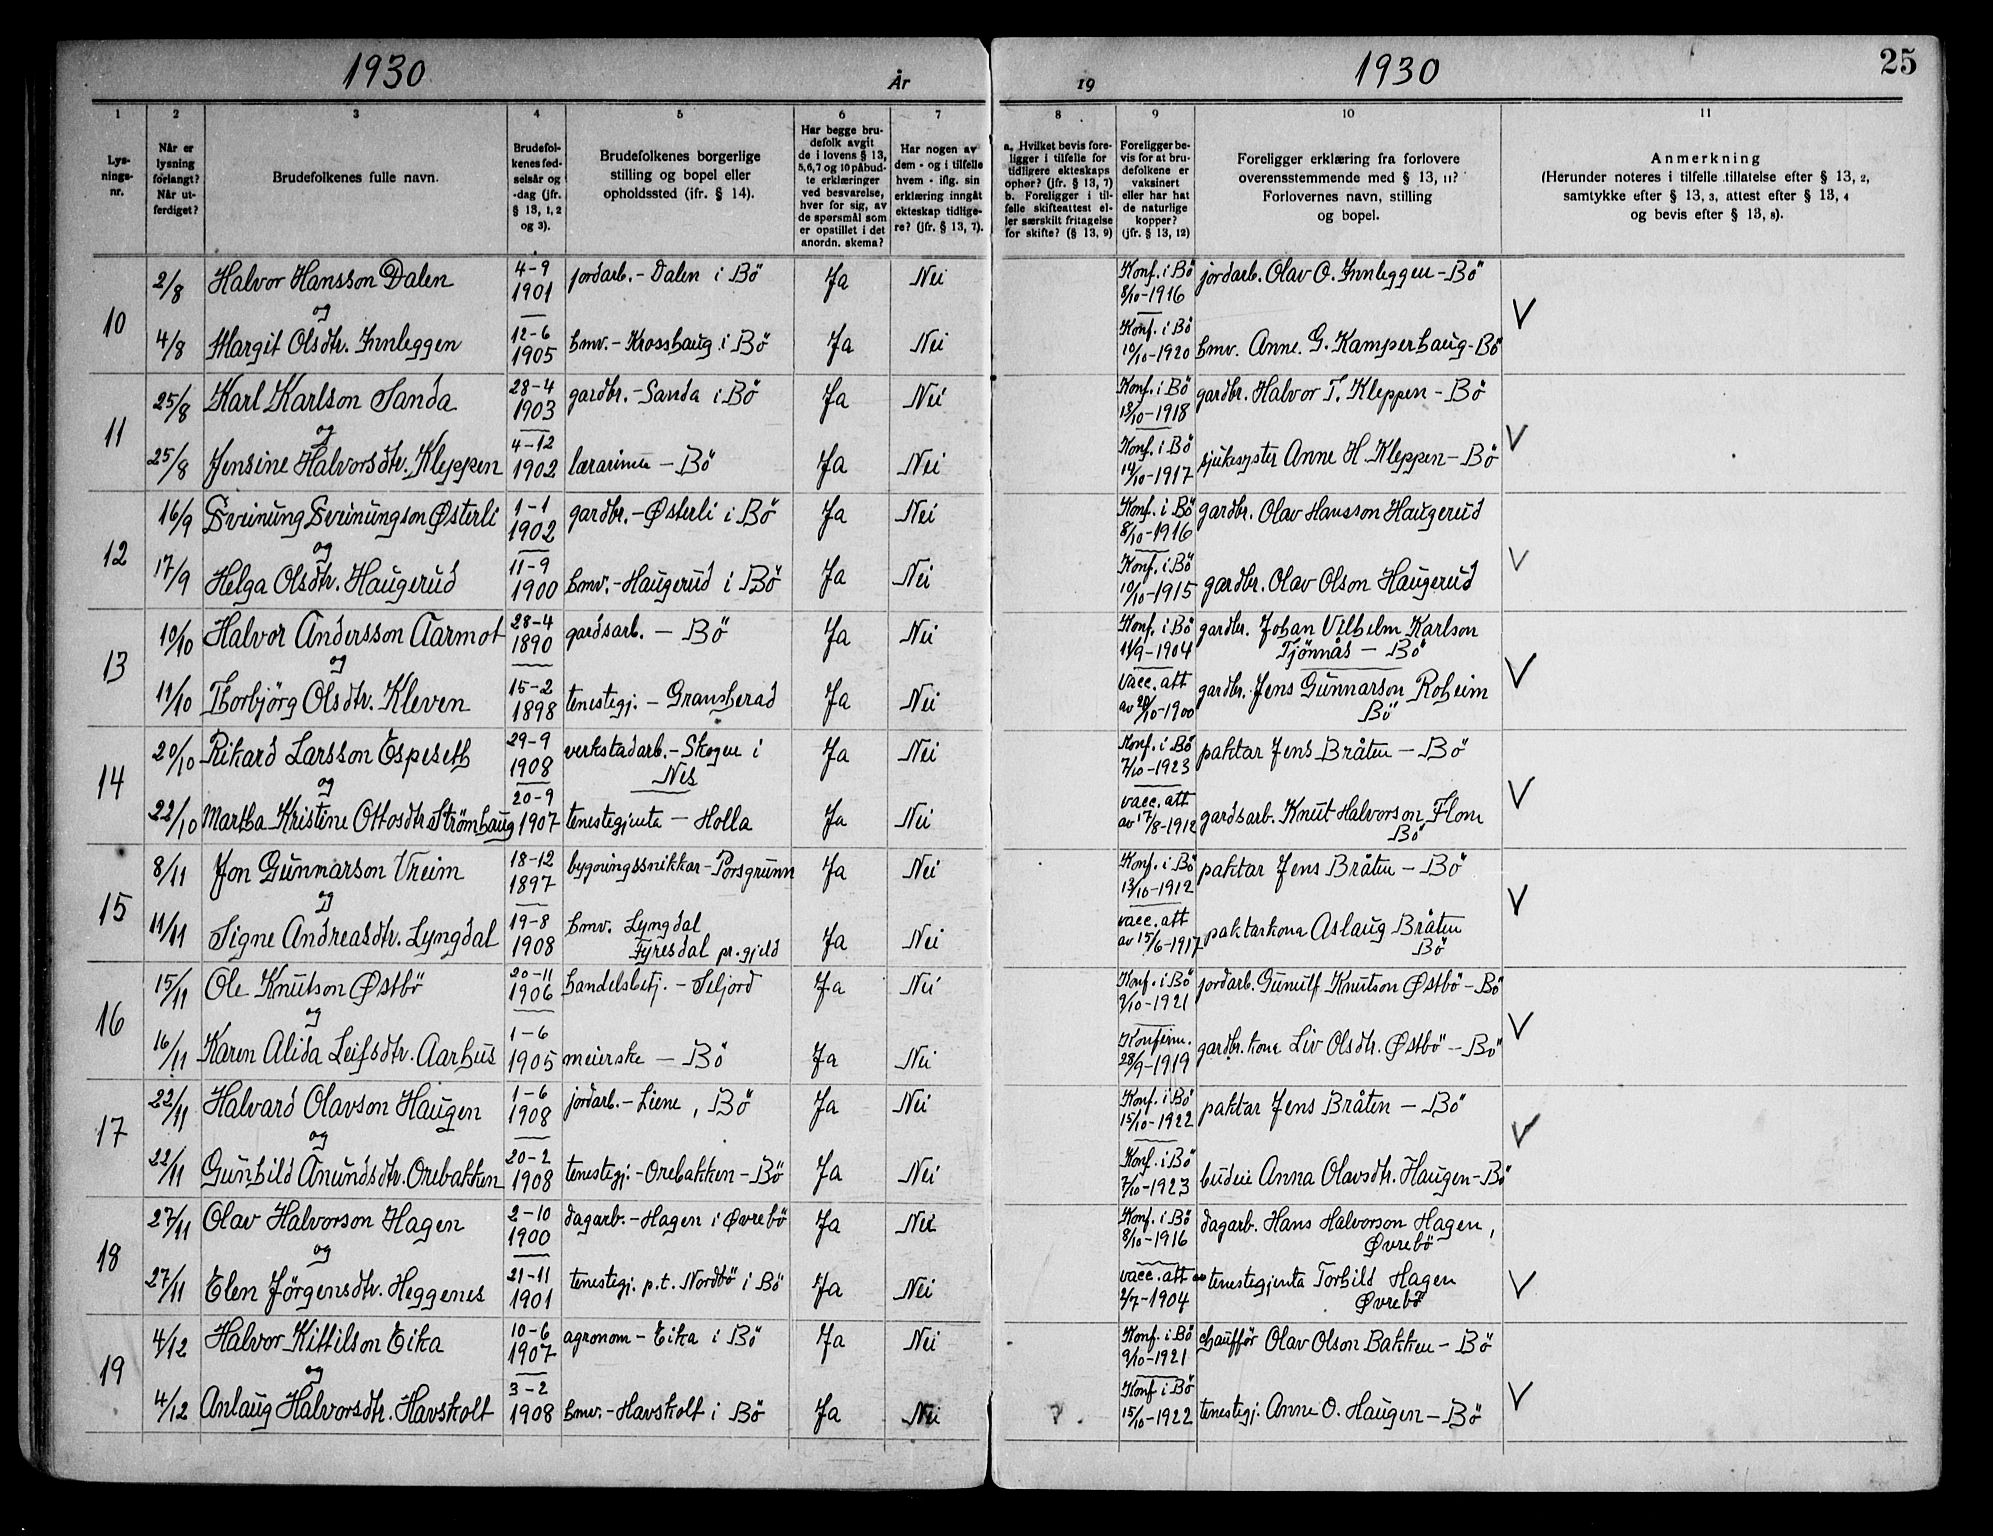 1930
År
19
1930
25
1 2 3 4 5 6 7 8 9 10 11
Lys-
nings-
nr.
Når er
lysning
forlangt?
Når ut-
ferdiget?
Brudefolkenes fulle navn.
Brudefol-
kenes fød-
selsår og
-dag (jfr.
§ 13, 1, 2
og 3).
Brudefolkenes borgerlige
stilling og bopel eller
opholdssted (ifr. § 14).
Har begge bru-
defolk avgit
de i lovens § 13,
5,6,7 og 10 påbud-
te erklæringer
ved besvarelse,
hver for sig, av
de spørsmål som
er opstillet i det
anordn. skema?
Har nogen av
dem - og i tilfelle
hvem - iflg. sin
erklæring inngåt
ekteskap tidlige-
re? (jfr. § 13, 7).
a. Hvilket bevis fore-
ligger i tilfelle for
tidligere ekteskaps
opher? (jfr. § 13, 7)
b. Foreligger i til-
felle skifteattest el-
ler særskilt fritagelse
for skifte? (§ 13, 9)
Foreligger be-
vis for at bru-
defolkene er
vaksinert
eller har hat
de naturlige
kopper?
(jfr. § 13, 12)
Foreligger erklæring fra forlovere
overensstemmende med § 13, 11?
Forlovernes navn, stilling
og bopel.
Anmerkning
(Herunder noteres i tilfelle tillatelse efter § 13, 2,
samtykke efter § 13, 3, attest efter § 13, 4
og bevis efter § 13, 8).
10
2/8 Halvor Hansson Dalen 4-9 1901 jordarb. - Dalen i Bö Ja Nei Konf. i Bö 8/10-1916 jordarb. Olav O. Innleggen - Bö
og
4/8 Margit Olsdtr. Innleggen 12-6 1905 hmv. - Krosshaug i Bö Ja Nei Konf. i Bö 10/10-1920 hmv. Anne. G. Kamperhaug - Bö
11
25/8 Karl Karlson Sanda 28-4 1903 gardbr. - Sanda i Bö Ja Nei Konf. i Bö 13/10-1918 gardbr. Halvor T. Kleppen - Bö
og
25/8 Jensine Halvorsdtr. Kleppen 4-12 1902 lærarinna - Bö Ja Nei Konf. i Bö 14/10-1917 sjukesyster Anne H. Kleppen - Bö
12
16/9 Sveinung Sveinungson Østerli 1-1 1902 gardbr. - Østerli i Bö Ja Nei Konf. i Bö 8/10-1916 gardbr. Olav Hansson Haugerud
og
17/9 Helga Olsdtr. Haugerud 11-9 1900 hmv. - Haugerud i Bö Ja Nei Konf. i Bö 10/10-1915 gardbr. Olav Olson Haugerud
13
10/10 Halvor Andersson Aarmot 28-4 1890 gardsarb. - Bö Ja Nei Konf. i Bö 11/9-1904 gardbr. Johan Vilhelm Karlson
Tjönnås - Bö
og
11/10 Torbjörg Olsdtr. Kleven 15-2 1898 tenestegj. - Gransherad Ja Nei vacc. att av 20/10-1900 gardbr. Jens Gunnarson Roheim
Bö
14
20/10 Rikard Larsson Espeseth 29-9 1908 verkstadarb. - Skogen i
Nes Ja Nei Konf. i Bö 7/10-1923 paktar Jens Bråten - Bö
og
22/10 Martha Kristine Ottosdtr Strömhaug 20-9 1907 tenestegjenta - Holla Ja Nei vacc. att av 17/8-1912 gardsarb. Knut Halvorson Flom
Bö
15
8/11 Jon Gunnarson Vreim 18-12 1897 bygningssnikkar - Porsgrunn Ja Nei Konf. i Bö 13/10-1912 paktar Jens Bråten - Bö
og
11/11 Signe Andreasdtr. Lyngdal 19-8 1908 hmv. Lyngdal
Fyresdal pr.gjeld Ja Nei vacc. att av 15/6-1917 paktarkona Aslaug Bråten
Bö
16
15/11 Ole Knutson Østbö 20-11 1906 handelsbetj. - Seljord Ja Nei Konf. i Bö 9/10-1921 jordarb. Gunulf Knutson Østbö - Bö
og
16/11 Karen Alida Leifsdtr. Aarhus 1-6 1905 meierske - Bö Ja Nei Konfirm. 28/9-1919 gardbr. kona Liv Olsdtr. Østbö - Bö
17
22/11 Halvard Olavson Haugen 1-6 1908 jordarb. - Liene, Bö Ja Nei Konf. i Bö 15/10-1922 paktar Jens Bråten - Bö
og
22/11 Gunhild Anundsdtr. Orebakken 20-2 1908 tenestegj. - Orebakken - Bö Ja Nei Konf. i Bö 7/10-1923 budeie Anna Olavsdtr. Haugen - Bö
18
27/11 Olav Halvorson Hagen 2-10 1900 dagarb. - Hagen i Øvrebö Ja Nei Konf. i Bö 8/10-1916 dagarb. Hans Halvorson Hagen,
Øvrebö
og
27/11 Elen Jörgensdtr. Heggenes 21-11 1901 tenestegj. p.t. Nordbö i Bö Ja Nei vacc. att av 2/7-1904 tenestegjenta Torhild Hagen
Øvrebö
19
4/12 Halvor Kittilson Eika 10-6 1907 agronom - Eika i Bö Ja Nei Konf. i Bö 9/10-1921 chaufför Olav Olson Bakken - Bö
og
4/12 Anlaug Halvorsdtr. Havskolt 3-2 1908 hmv. - Havskolt i Bö Ja Nei Konf i Bö 15/10-1922 tenestegj. Anne O. Haugen - Bö